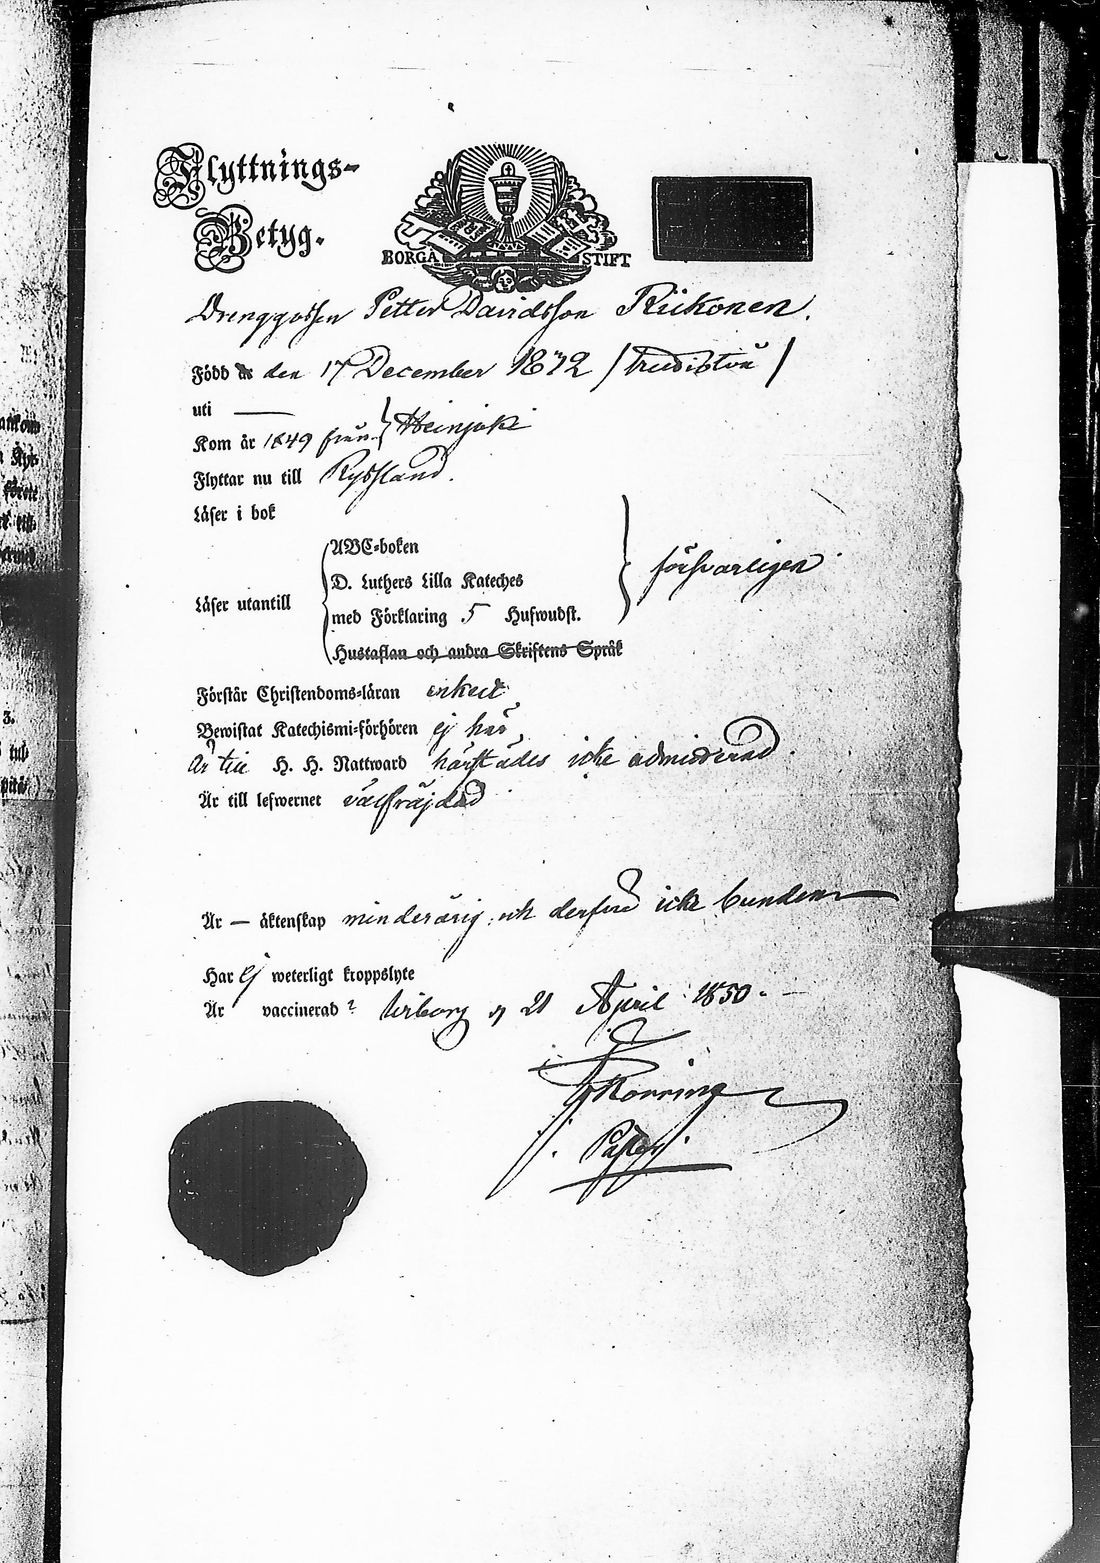 Flyttnings-
Betyg.
BORGÅ STIFT
Drenggossen Petter Davidsson Riikonen.
Född den 17 December 1832 / trediotvå /
uti —
Kom år 1849 från } Heinjoki
Flyttar nu till Ryssland.
Läser i bok
ABC-boken
D. Luthers Lilla Kateches
Läser utantill
med Förklaring 5 Hufwudst.
försvarligen
Hustaflan och andra Skriftens Språk
Förstår Christendoms-läran enkelt
Bewistat Katechismi-förhören ej här
Är till H. H. Nattward härstädes icke admitterad.
Är till lefwernet välfräjdad
Är — äktenskap minderårig och derföre icke bunden
Har ej weterligt kroppslyte
Är vaccinerad? Wiborg d. 21 April 1850.
Pastor.